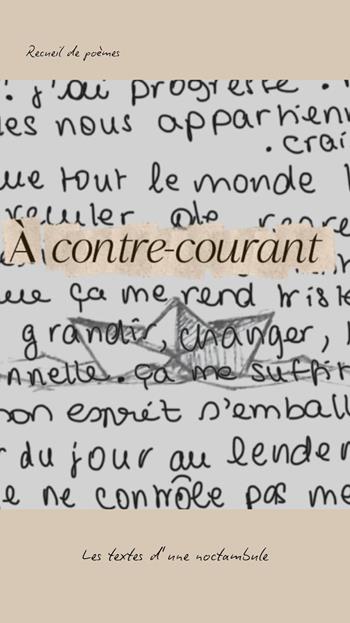 Recueil de poèmes
! j'ai progressé
les nous appartienn
. crai
ue tout le monde
reculer de
À contre-courant
ue ça me rend triste
grandir, changer,
nnelle. ça me suffir
on esprit s'emball
du jour au lender
e ne contrôle pas me
Les textes d'une noctambule